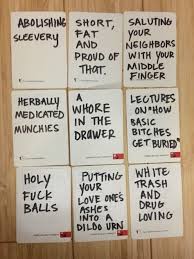 ABOLISHING
SLEEVERY
SHORT,
FAT
AND
PROUD OF
THAT.
SALUTING
YOUR
NEIGHBORS
WITH YOUR
MIDDLE
FINGER
HERBALLY
MEDICATED
MUNCHIES
A
WHORE
IN THE
DRAWER
LECTURES
ON "HOW
BASIC
BITCHES
GET BURIED"
HOLY
FUCK
BALLS
PUTTING
YOUR
LOVE ONE'S
ASHES
INTO A
DILDO URN
WHITE
TRASH
AND
DRUG
LOVING